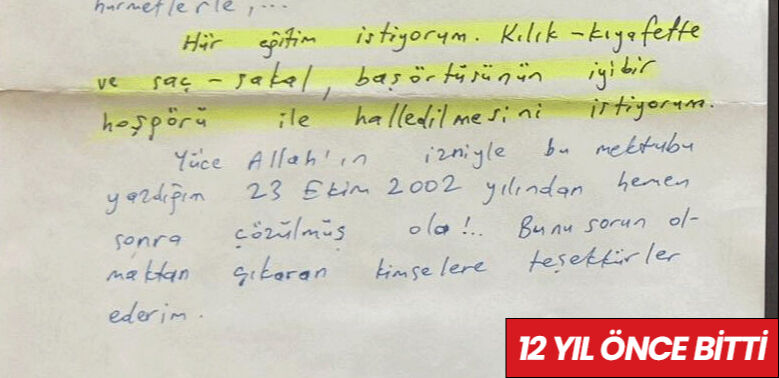 hürmetlerle,...
Hür eğitim istiyorum. Kılık-kıyafette
ve saç-sakal, başörtüsünün iyi bir
hoşgörü ile halledilmesini istiyorum.
Yüce Allah'ın izniyle bu mektubu
yazdığım 23 Ekim 2002 yılından hemen
sonra çözülmüş ola!.. Bunu sorun ol-
maktan çıkaran kimselere teşekkürler
ederim.
12 YIL ÖNCE BİTTİ